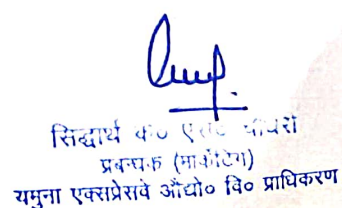 सिद्धार्थ के० एस० चौधरी
प्रबन्धक (मार्केटिंग)
यमुना एक्सप्रेसवे औद्यो० वि० प्राधिकरण